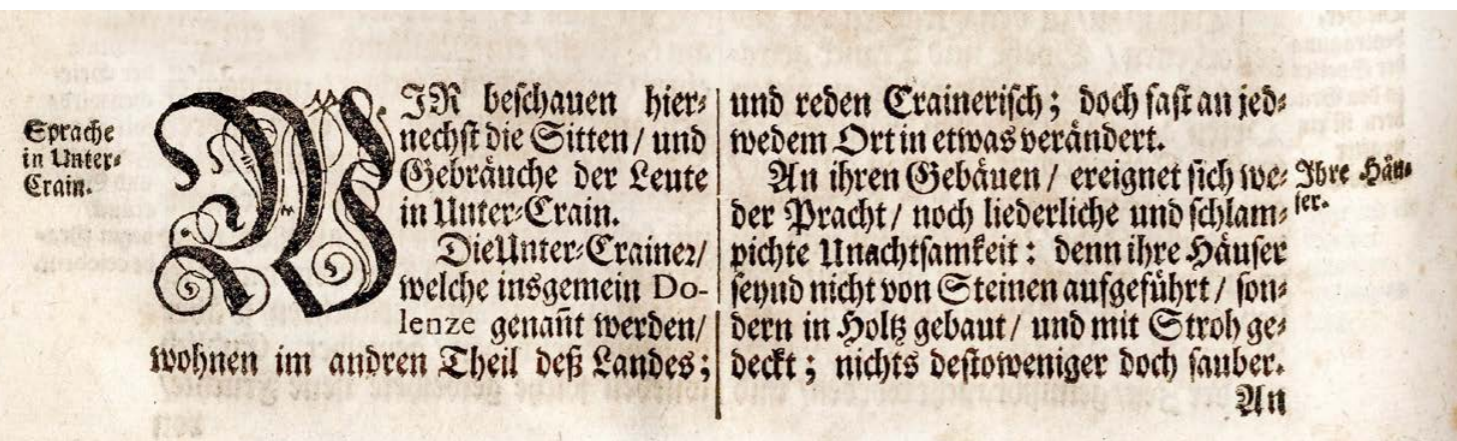 Sprache
in Unter⸗
Crain.
WIR beschauen hier⸗
nechst die Sitten / und
Gebräuche der Leute
in Unter⸗Crain.
Die Unter⸗Crainer/
welche insgemein Do-
lenze genañt werden/
wohnen im andren Theil deß Landes;
und reden Crainerisch; doch fast an jed⸗
wedem Ort in etwas verändert.
An ihren Gebäuen / ereignet sich we⸗
der Pracht / noch liederliche und schlam⸗
pichte Unachtsamkeit: denn ihre Häuser
seynd nicht von Steinen aufgeführt / son⸗
dern in Holtz gebaut / und mit Stroh ge⸗
deckt; nichts destoweniger doch sauber.
An
Ihre Häu⸗
ser.